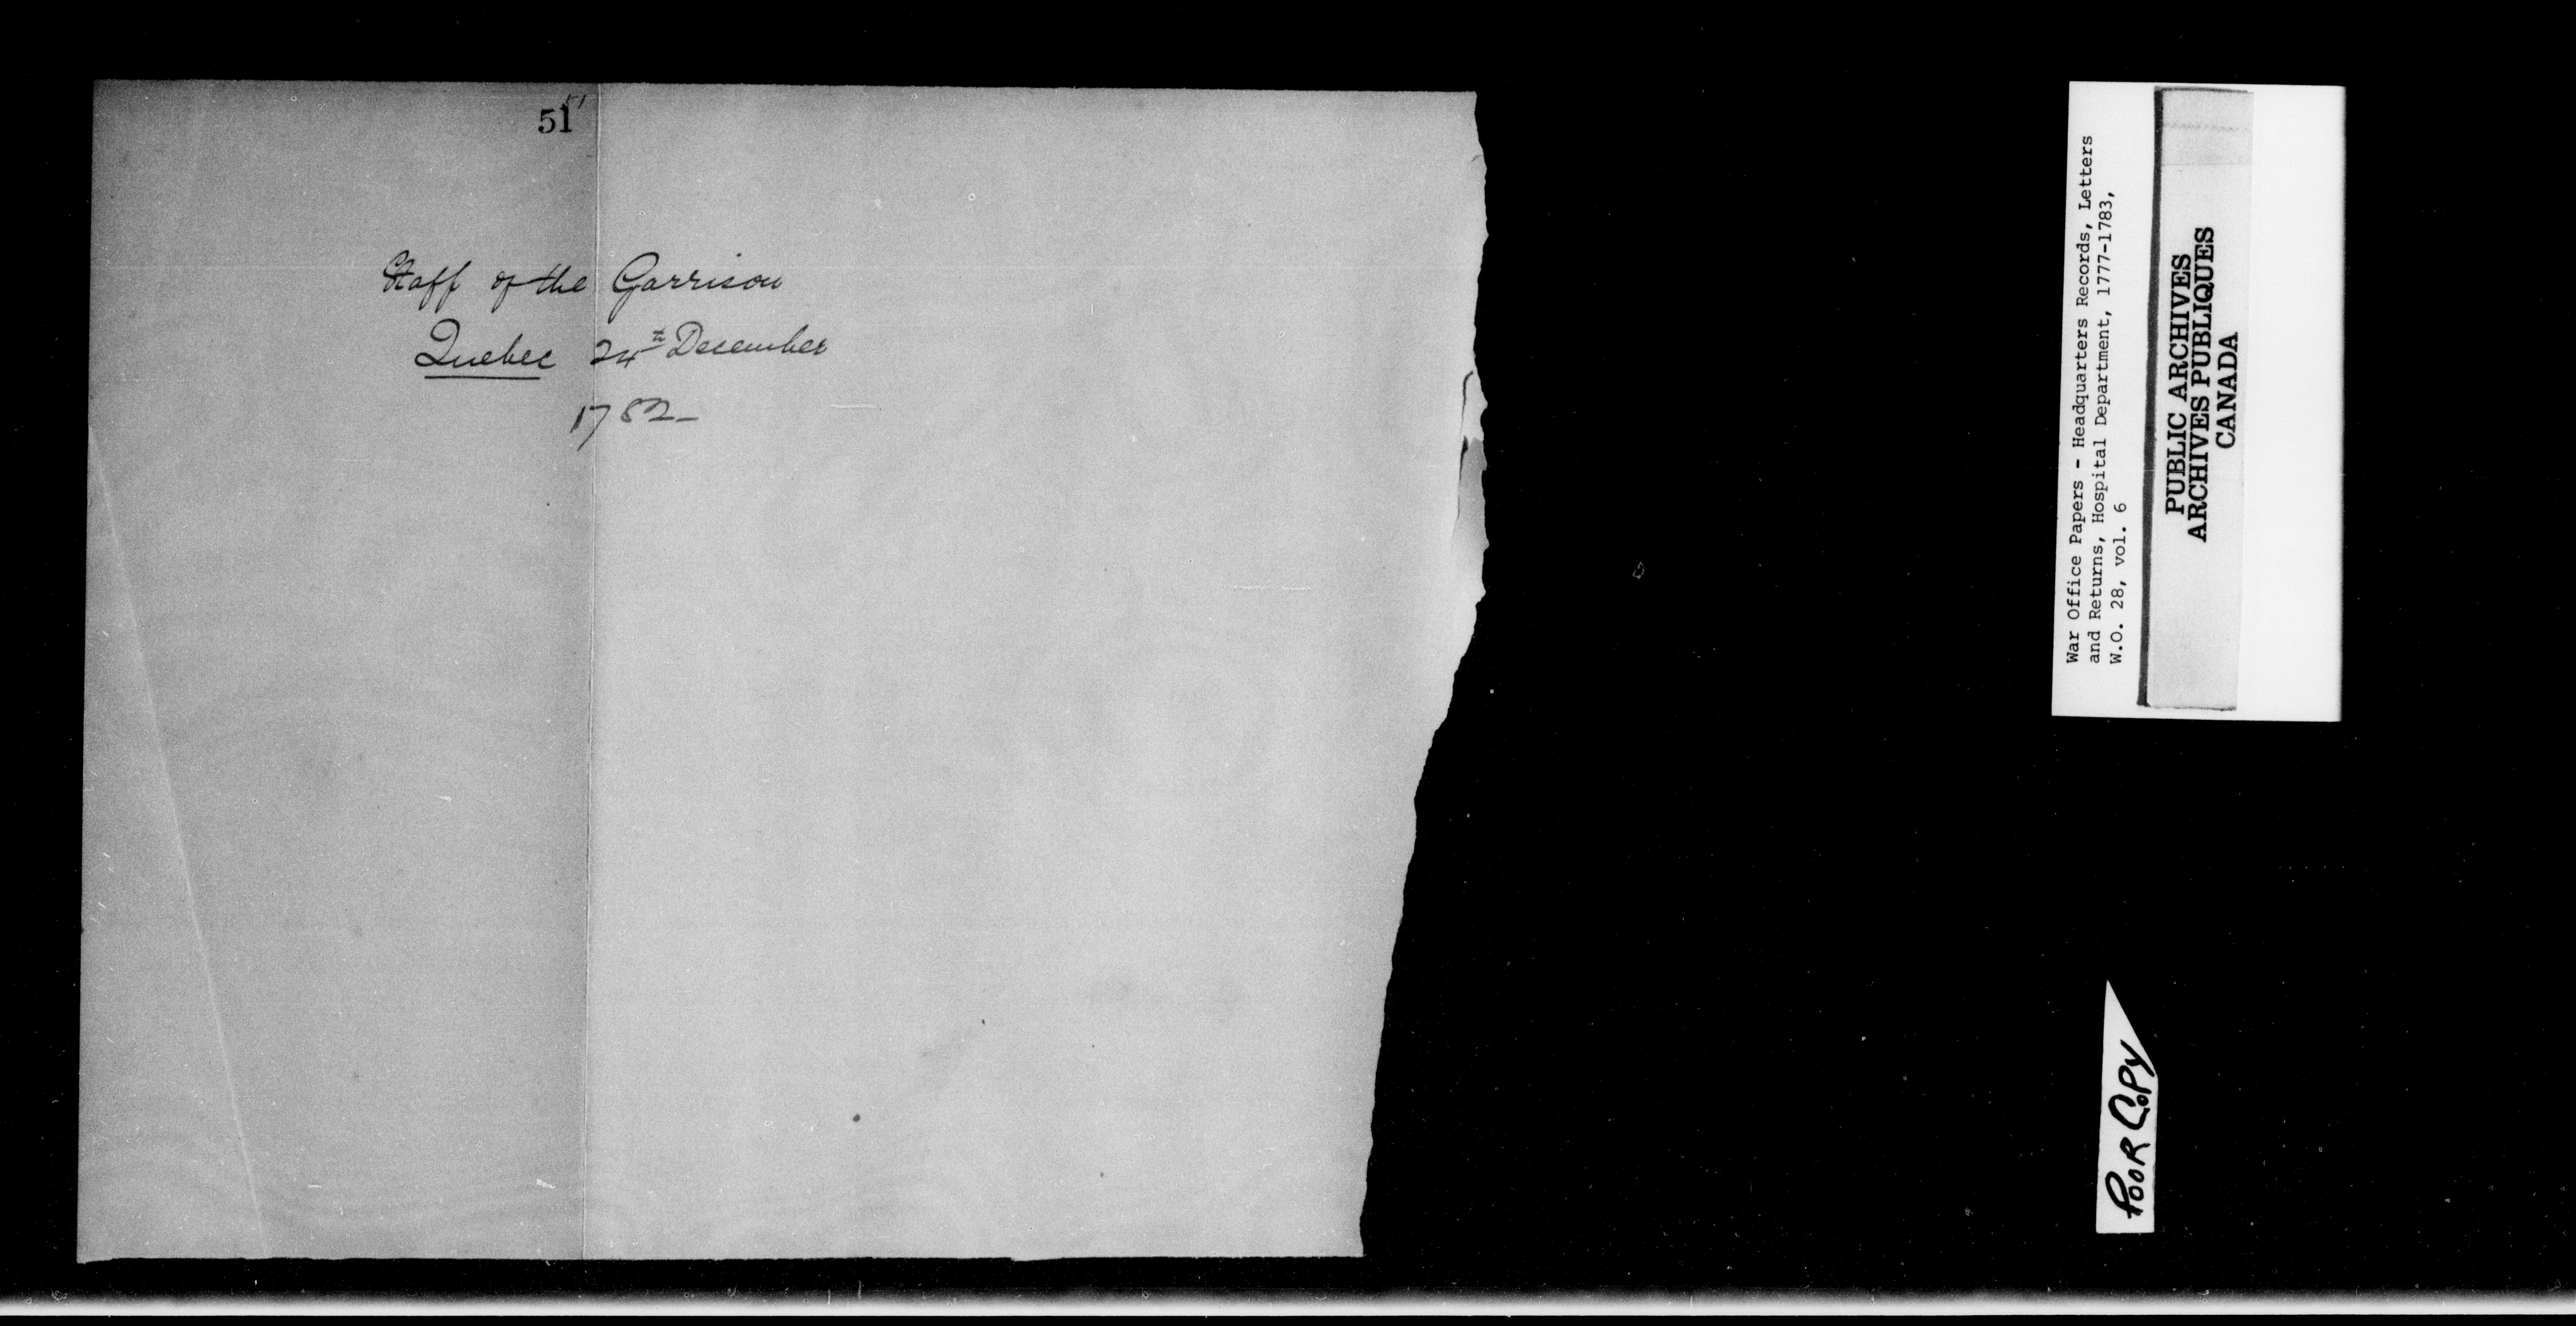 51
51
Staff of the Garrison
Quebec 24th December
1782-
War Office Papers - Headquarters Records, Letters
and Returns, Hospital Department, 1777-1783,
W.O. 28, vol. 6
PUBLIC ARCHIVES
ARCHIVES PUBLIQUES
CANADA
POOR COPY